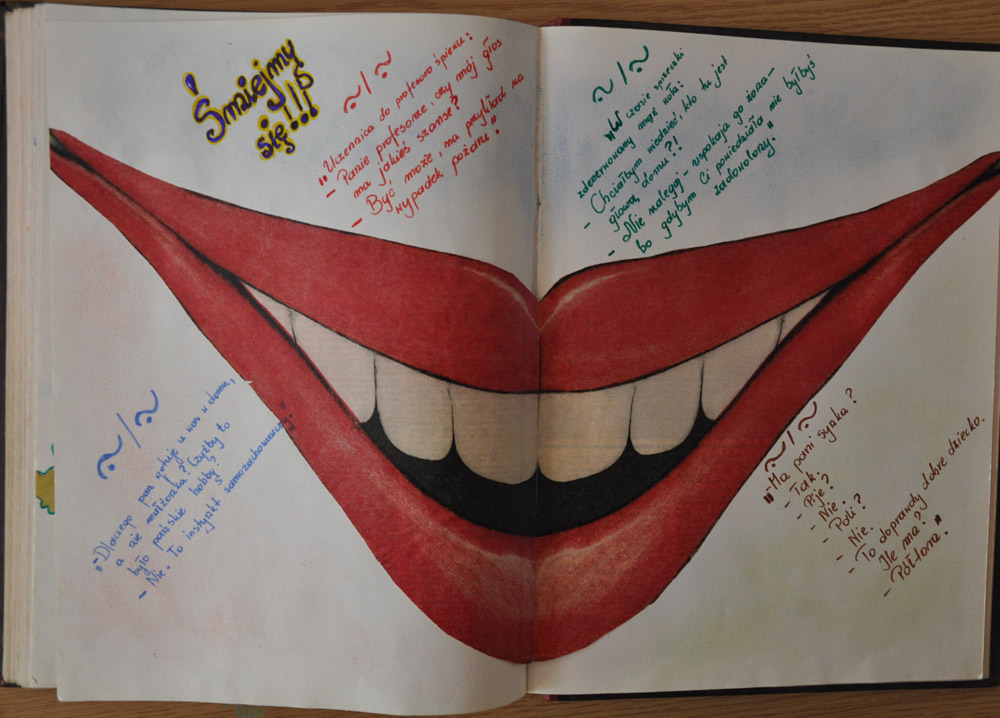 Śmiejmy
się!!!
~/~
"Uczennica do profesora śpiewu:
- Panie profesorze, czy mój głos
ma jakieś szanse?
- Być może, na przykład na
wypadek pożaru."
~/~
"W czasie sprzeczki
zdenerwowany mąż woła:
- Chciałbym wiedzieć, kto tu jest
głową domu?!
- Nie nalegaj - uspokaja go żona -
bo gdybym Ci powiedziała nie byłbyś
zadowolony."
~/~
"- Dlaczego pan gotuje u was w domu,
a nie małżonka? Czyżby to
było pańskie hobby?
- Nie. To instynkt samozachowawczy."
~/~
"- Ma pani synka?
- Tak.
- Pije?
- Nie.
- Pali?
- Nie.
- To doprawdy dobre dziecko.
Ile ma?
- Półtora."